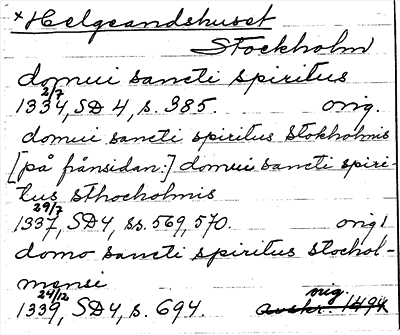 ×Helgeandshuset
Stockholm
domui sancti spiritus
2/7
1334, SD 4, s. 385. orig.
domui sancti spiritus Stokholmis
[på frånsidan:] domui sancti spiri-
tus sthocholmis
29/7
1337, SD 4, ss. 569, 570. orig!
domo sancti spiritus stochol-
mensi
24/12 orig.
1339, SD 4, s. 694. avskr. 1494